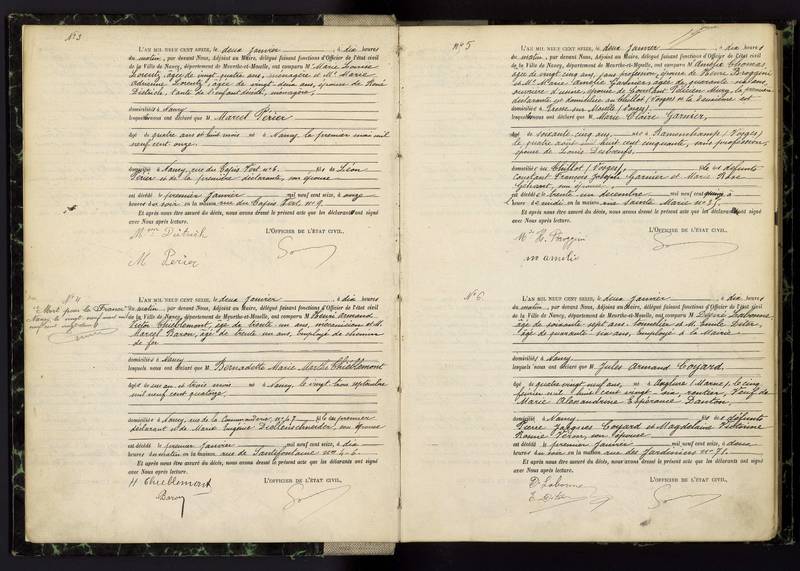 N°3
L'AN MIL NEUF CENT SEIZE, le deux Janvier, à dix heures
du matin, par devant Nous, Adjoint au Maire, délégué faisant fonctions d'Officier de l'état civil
de la Ville de Nancy, département de Meurthe-et-Moselle, ont comparu Me Marie Louise
Lorentz, âgée de vingt quatre ans, ménagère et Me Marie
Adrienne Lorentz, âgée de vingt deux ans, épouse de René
Dietrich, tante de l'enfant décédé, ménagère,
domiciliés à Nancy
lesquelles nous ont déclaré que M. Marcel Perier
âgé de quatre ans et huit mois né à Nancy le premier mai mil
neuf cent onze.
domicilié à Nancy, rue du Tapis Vert n° 6. fils de Léon
Perier et de la première déclarante, son épouse
est décédé le premier Janvier mil neuf cent seize, à onze
heures du soir en la maison rue du Tapis Vert n° 9.
Et après nous être assuré du décès, nous avons dressé le présent acte que les déclarants ont signé
avec Nous après lecture.
L'OFFICIER DE L'ÉTAT CIVIL,
Dietrich
M Perier
N° 4
"Mort pour la France"
L'AN MIL NEUF CENT SEIZE, le deux janvier, à dix heures
du matin, par devant Nous, Adjoint au Maire, délégué faisant fonctions d'Officier de l'état civil
de la Ville de Nancy, département de Meurthe-et-Moselle, ont comparu M. Henri Armand
Victor Chieblemont, âgé de trente un ans, mécanicien et M.
Marcel Baron, âgé de trente un ans, Employé de chemin
de fer
domiciliés à Nancy
lesquels nous ont déclaré que M. Bernadette Marie Marthe Chieblemont
âgée de un an et trois mois née à Nancy, le vingt trois septembre
mil neuf cent quatorze,
domiciliée à Nancy, rue de la Commanderie n° 47 fille du premier
déclarant et de Marie Eugénie
son épouse
est décédée le premier Janvier mil neuf cent seize, à dix
heures du matin en la maison rue de Santifontaine nos 4-6.
Et après nous être assuré du décès, nous avons dressé le présent acte que les déclarants ont signé
avec Nous après lecture.
L'OFFICIER DE L'ÉTAT CIVIL,
H Chieblemont
Baron
N° 5
L'AN MIL NEUF CENT SEIZE, le deux Janvier, à dix heures
du matin, par devant Nous, Adjoint au Maire, délégué faisant fonctions d'Officier de l'état civil
de la Ville de Nancy, département de Meurthe-et-Moselle, ont comparu Me Thomas,
âgée de vingt cinq ans, sans profession, épouse de Henri Broggini
et Me Marie Amélie Garnier, âgée de quarante
ans, ouvrière d'usine, épouse de Constant Mury, la première
déclarante est domiciliée au Thillot (Vosges) la deuxième est
domiciliés à Fresse sur Moselle (Vosges)
lesquelles nous ont déclaré que M. Marie Claire Garnier,
âgée de soixante cinq ans, née à Ramonchamp (Vosges)
le quatre août mil huit cent cinquante, sans profession,
épouse de Louis Desboeufs.
domiciliée au Thillot (Vosges), fille des défunts
Constant François Joseph Garnier et Marie Rose
son épouse
est décédée le trente un décembre mil neuf cent quinze à
heures de midi en la maison rue Sainte Marie n° 35.
Et après nous être assuré du décès, nous avons dressé le présent acte que les déclarants ont signé
avec Nous après lecture.
L'OFFICIER DE L'ÉTAT CIVIL,
Me H. Broggini
m amelie
N° 6.
L'AN MIL NEUF CENT SEIZE, le deux Janvier, à dix heures
du matin, par devant Nous, Adjoint au Maire, délégué faisant fonctions d'Officier de l'état civil
de la Ville de Nancy, département de Meurthe-et-Moselle, ont comparu M. Désiré Labonne,
âgé de soixante sept ans, tonnelier et M. Emile
âgé de quarante six ans, Employé à la Mairie
domiciliés à Nancy
lesquels nous ont déclaré que M. Jules Armand Coyard,
âgé de quatre vingt neuf ans, né à Anglure (Marne), le cinq
février mil huit cent vingt six, rentier, Veuf de
Marie Alexandrine Espérance Danton,
domicilié à Nancy fils des défunts
Pierre Jacques Coyard et Magdelaine Victorine
son épouse
est décédé le premier Janvier mil neuf cent seize, à deux
heures du soir en la maison rue des Jardiniers n° 71.
Et après nous être assuré du décès, nous avons dressé le présent acte que les déclarants ont signé
avec Nous après lecture.
L'OFFICIER DE L'ÉTAT CIVIL,
D Labonne